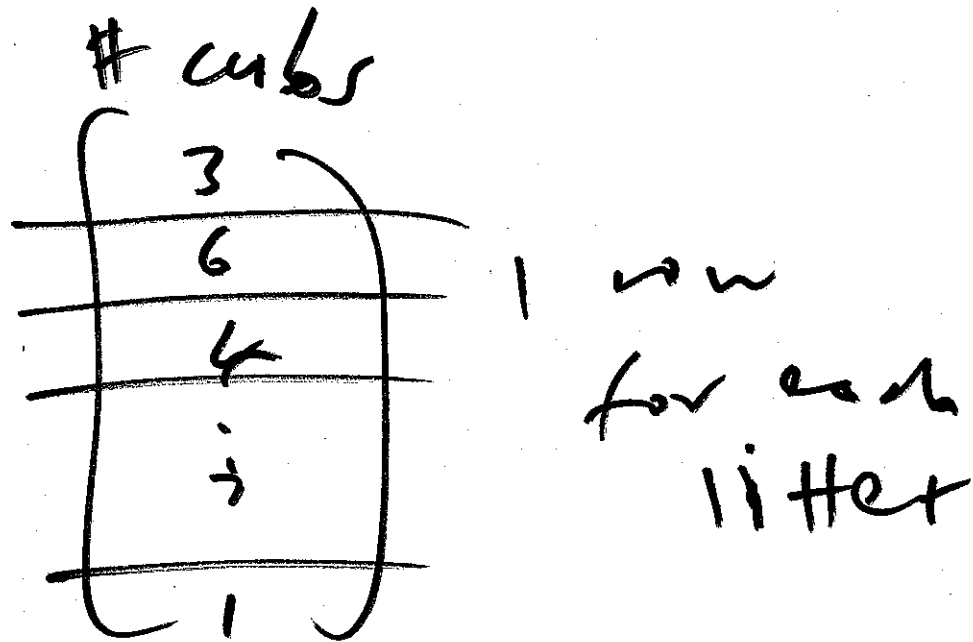 # cubs
3
6
4
⋮
1
1 row
for each
litter